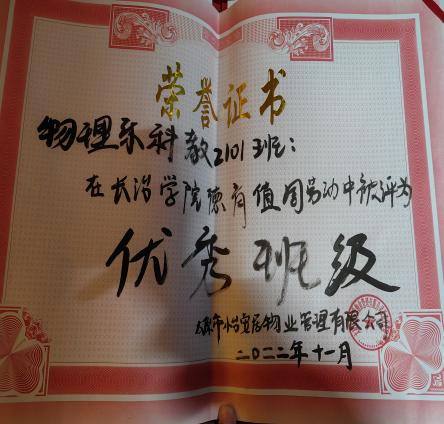 荣誉证书
物理系科教2101班：
在长治学院德育值周劳动中被评为
优秀班级
市小管家物业管理有限公司
二〇二二年十一月